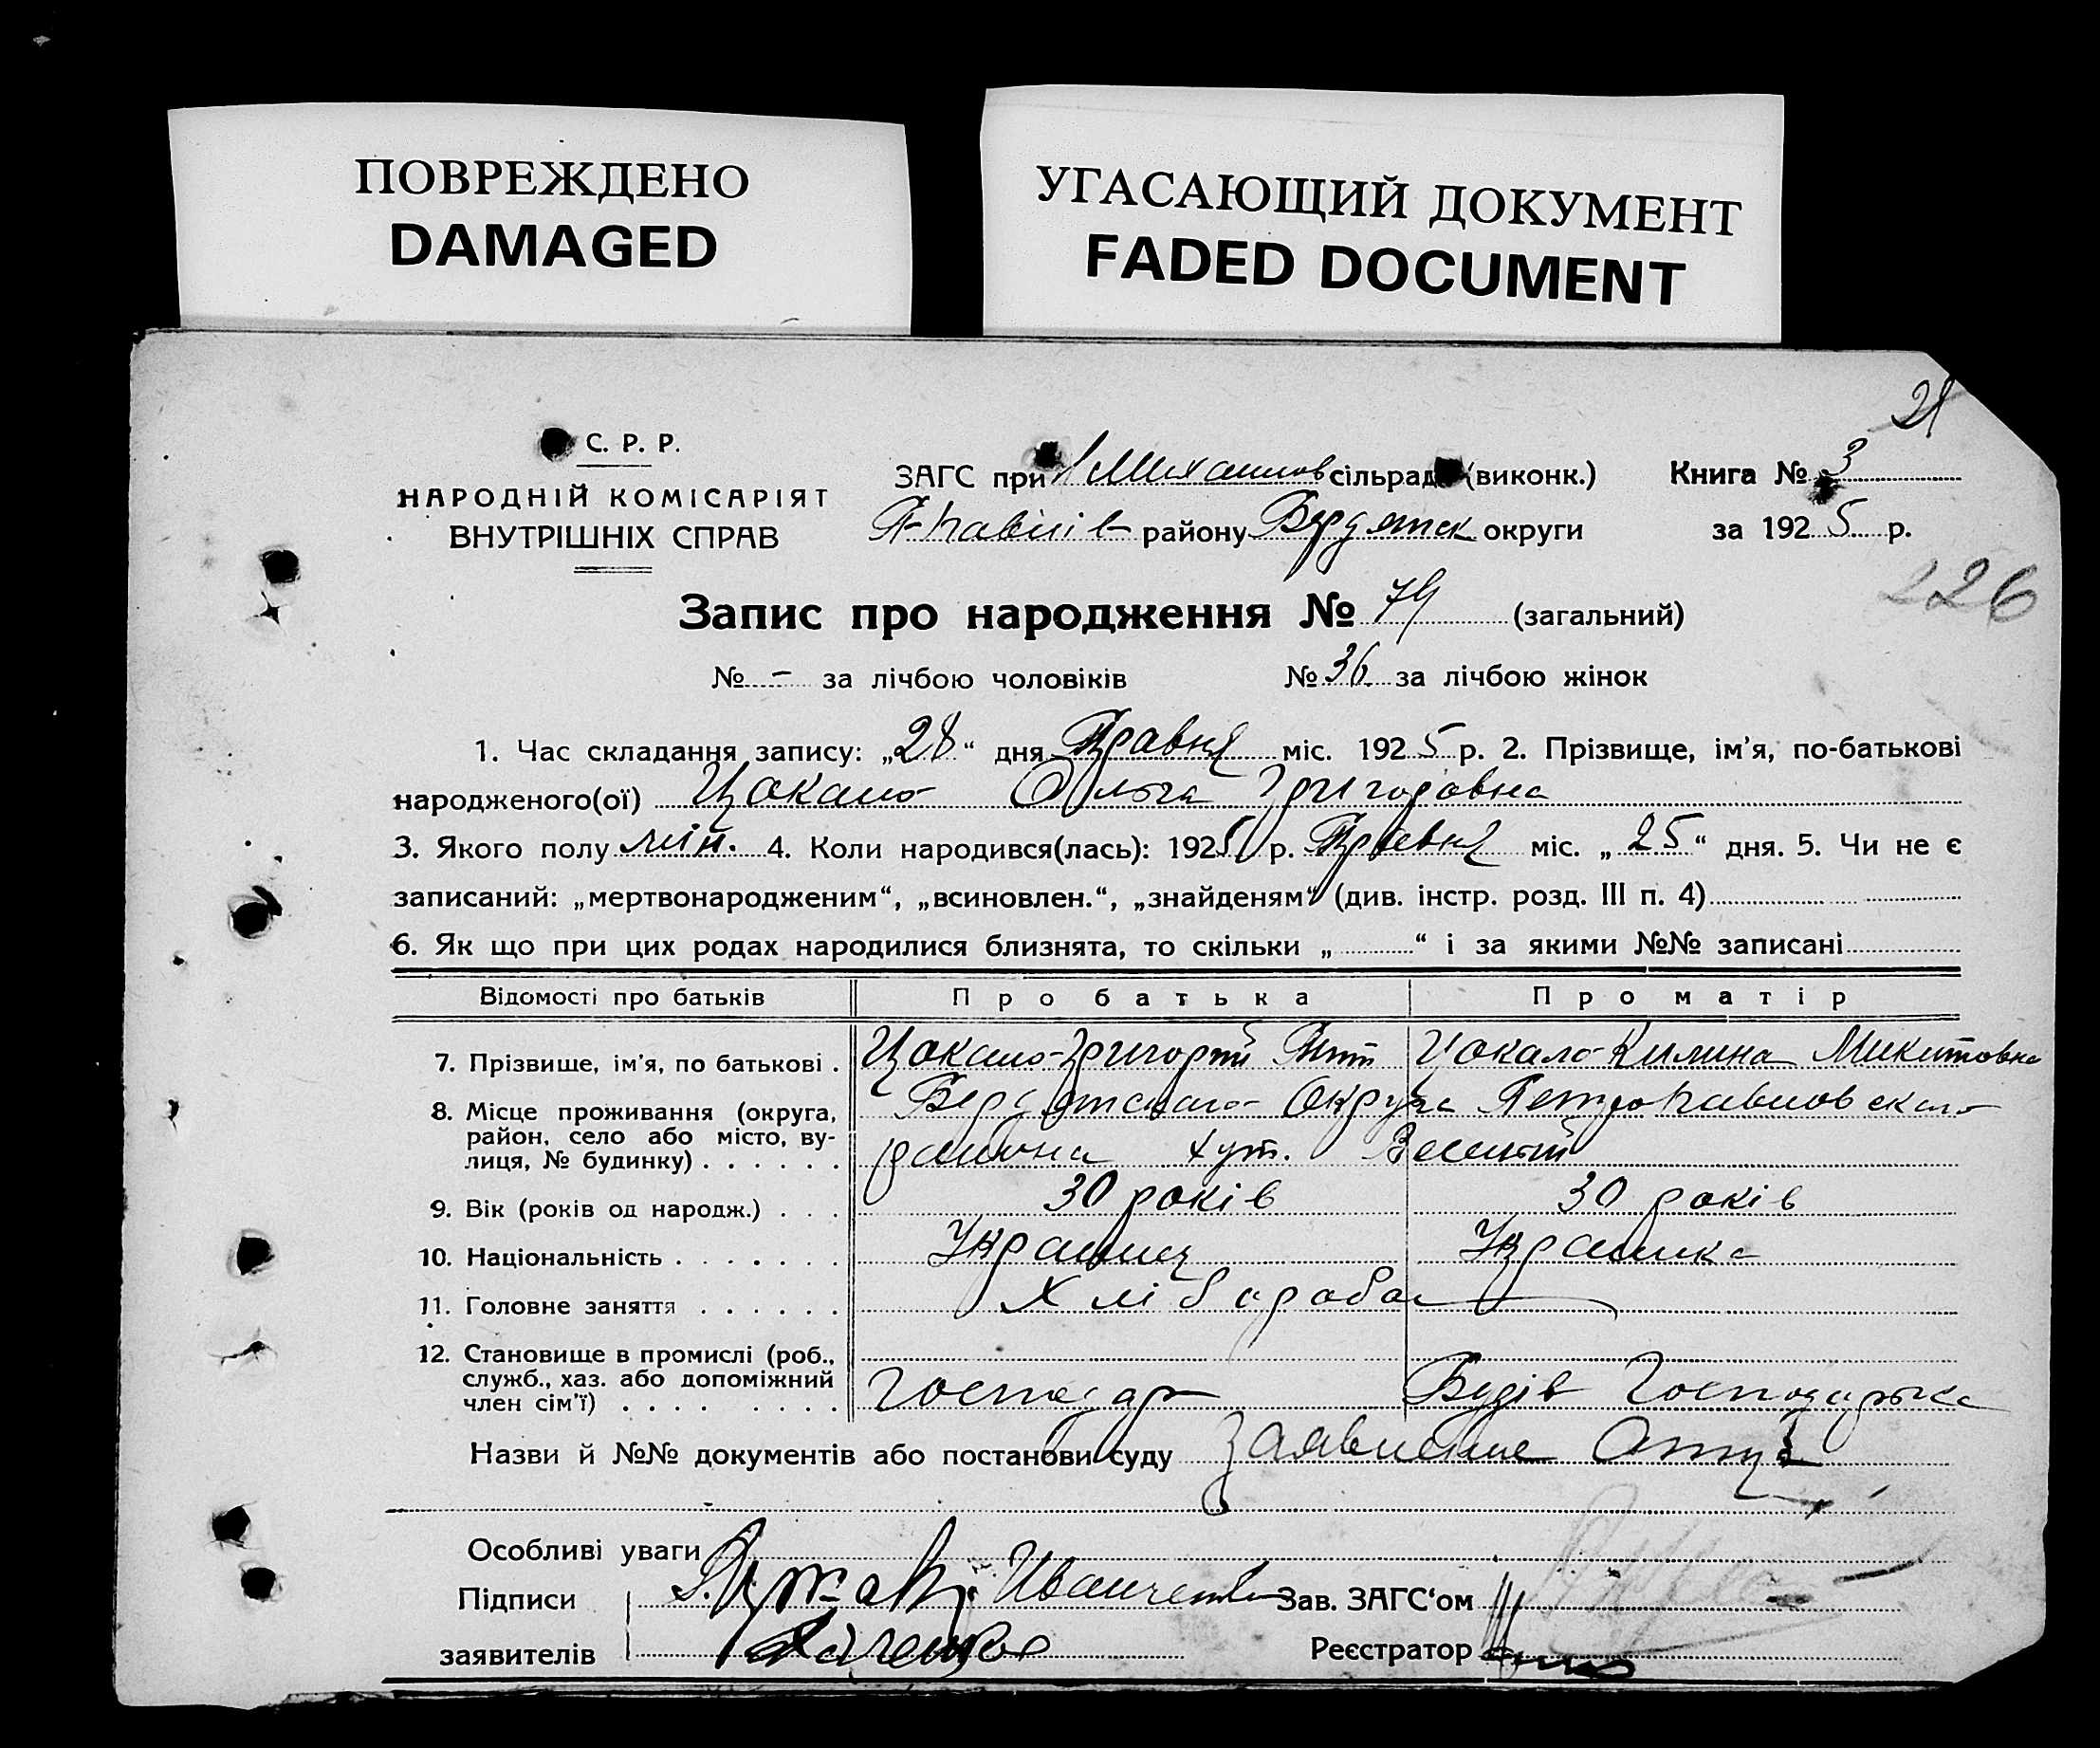 ПОВРЕЖДЕНО
DAMAGED
УГАСАЮЩИЙ ДОКУМЕНТ
FADED DOCUMENT
С. Р. Р.
НАРОДНІЙ КОМІСАРІЯТ
ВНУТРІШНІХ СПРАВ
ЗАГС при Михайлов сільрад (виконк.) Книга № 3
П-Павлів району Бердянск округи за 1925 р.
226
Запис про народження № 79 (загальний)
№ - за лічбою чоловіків № 36 за лічбою жінок
1. Час складання запису: „28“ дня Травня міс. 1925 р. 2. Прізвище, ім'я, по-батькові
народженого(ої) Цокало Ольга Григоровна
3. Якого полу жін. 4. Коли народився(лась): 1925 р. Травня міс. „25“ дня. 5. Чи не є
записаний: „мертвонародженим“, „всиновлен.“, „знайденям“ (див. інстр. розд. III п. 4)
6. Як що при цих родах народилися близнята, то скільки „ “ і за якими №№ записані
Відомості про батьків Про батька Про матір
7. Прізвище, ім'я, по батькові . Цокало Григорій Цокало Килина Микитовна
8. Місце проживання (округа, район, село або місто, вулиця, № будинку) . . . . . . Бердянського Округа Петропавловскаго
района хут. Веселый
9. Вік (років од народж.) . . . 30 років 30 років
10. Національність . . . . . . . Українец Українка
11. Головне заняття . . . . . . Хлібороба
12. Становище в промислі (роб., служб., хаз. або допоміжний член сім'ї) . . . . . . . . Господар Господарька
Назви й №№ документів або постанови суду Заявление Отца
Особливі уваги
Підписи Иванченко Зав. ЗАГС'ом
заявителів Реєстратор